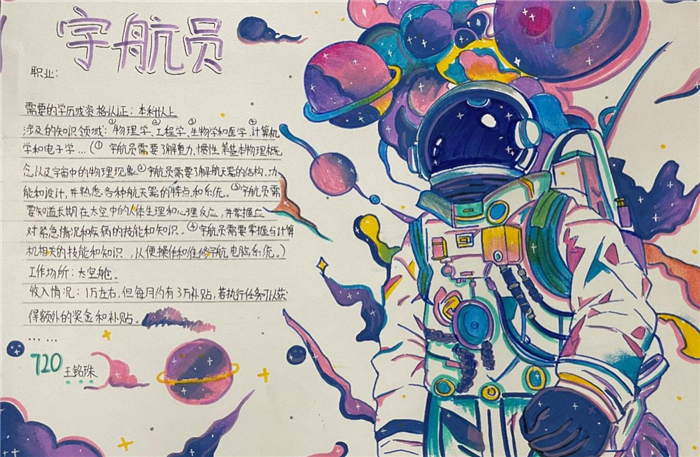 宇航员
职业：
需要的学历或资格认证：本科以上
涉及的知识领域：物理学①、工程学②、生物学和医学③、计算机
学和电子学④…(①宇航员需要了解重力、惯性等基本物理概
念,以及宇宙中的物理现象②宇航员需要了解航天器的结构、功
能和设计,并熟悉各种航天器的特点和系统。③宇航员需
要知道长期在太空中的人体生理和心理反应,并掌握
对紧急情况和疾病的技能和知识。④宇航员需要掌握与计算
机相关的技能和知识,以便操作和维修宇航电脑系统。)
工作场所：太空舱。
收入情况：1万左右,但每月约有3万补贴,若执行任务可以获
得额外的奖金和补贴。
……
720 王铭珠